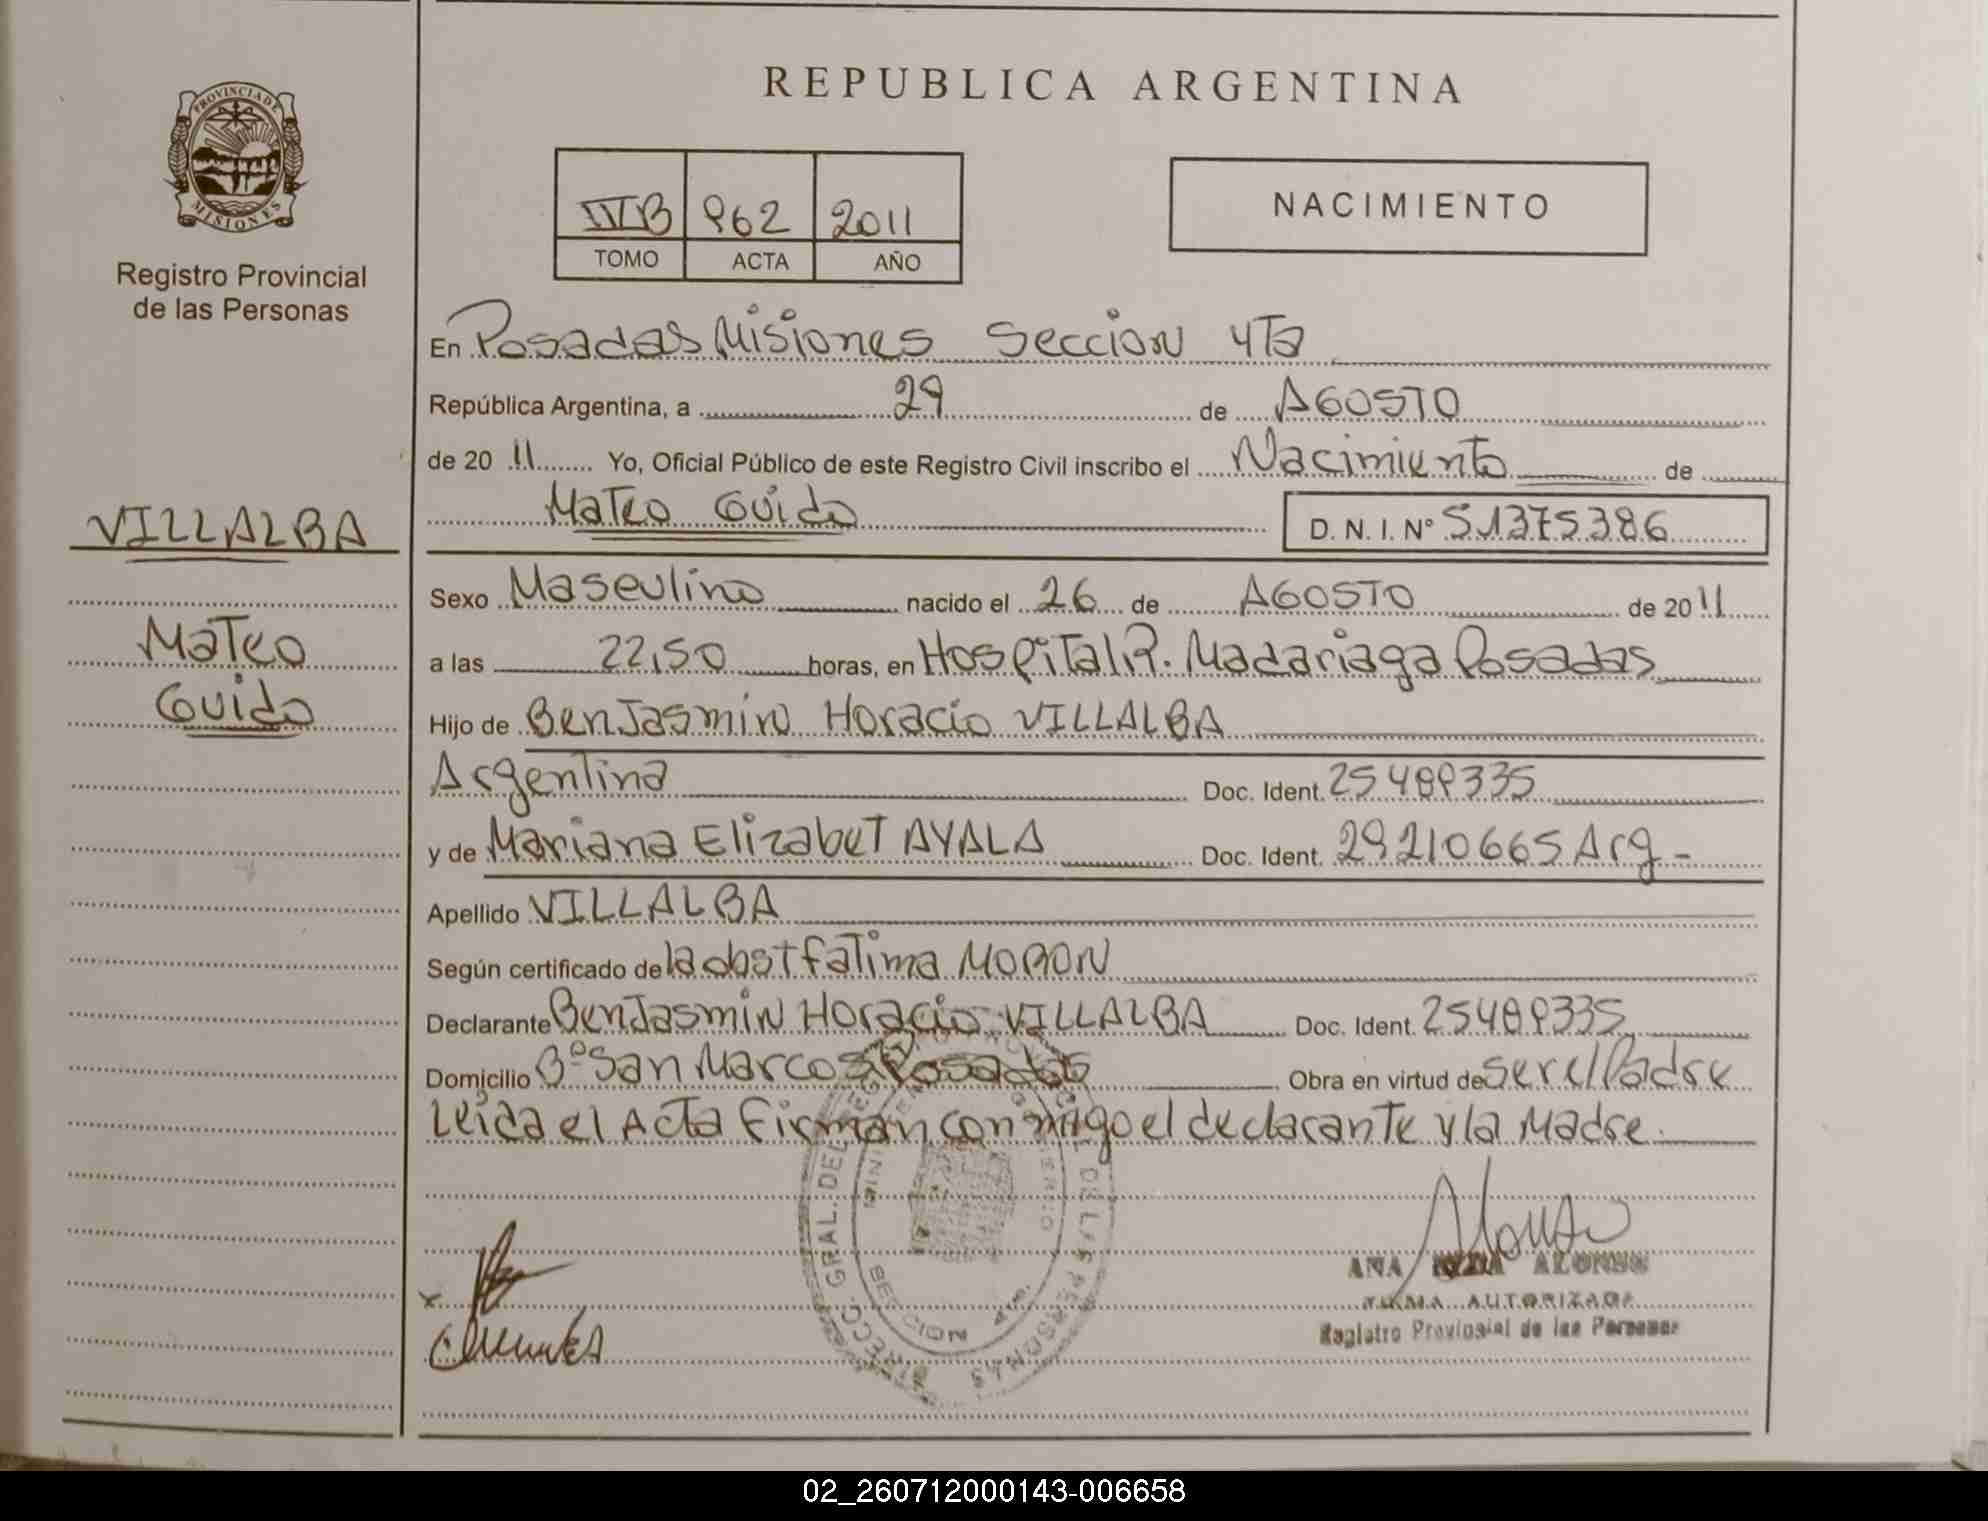 PROVINCIA DE
MISIONES
Registro Provincial
de las Personas
REPUBLICA ARGENTINA
962 2011
TOMO ACTA AÑO
NACIMIENTO
En Posadas Misiones Seccion 4Ta
República Argentina, a 29 de AGOSTO
de 20 11 Yo, Oficial Público de este Registro Civil inscribo el Nacimiento de
Mateo Guido D. N. I. Nº 51375386
VILLALBA
Mateo
Guido
Sexo Masculino nacido el 26 de AGOSTO de 20 11
a las 22,50 horas, en Hospital R. Madariaga Posadas
Hijo de BenJasmin Horacio VILLALBA
Argentina Doc. Ident. 25489335
y de Mariana Elizabet AYALA Doc. Ident. 29210665 Arg -
Apellido VILLALBA
Según certificado de la obst fatima MORON
Declarante BenJasmin Horacio VILLALBA Doc. Ident. 25489335
Domicilio Bº San Marcos Posadas Obra en virtud de ser el Padre
Leida el Acta Firman conmigo el declarante y la Madre.
DIRECC. GRAL. DEL REG. DE LAS PERSONAS
SECCION 4ta.
Alonso
ANA ALONSO
FIRMA AUTORIZADA
Registro Provincial de las Personas
02_260712000143-006658